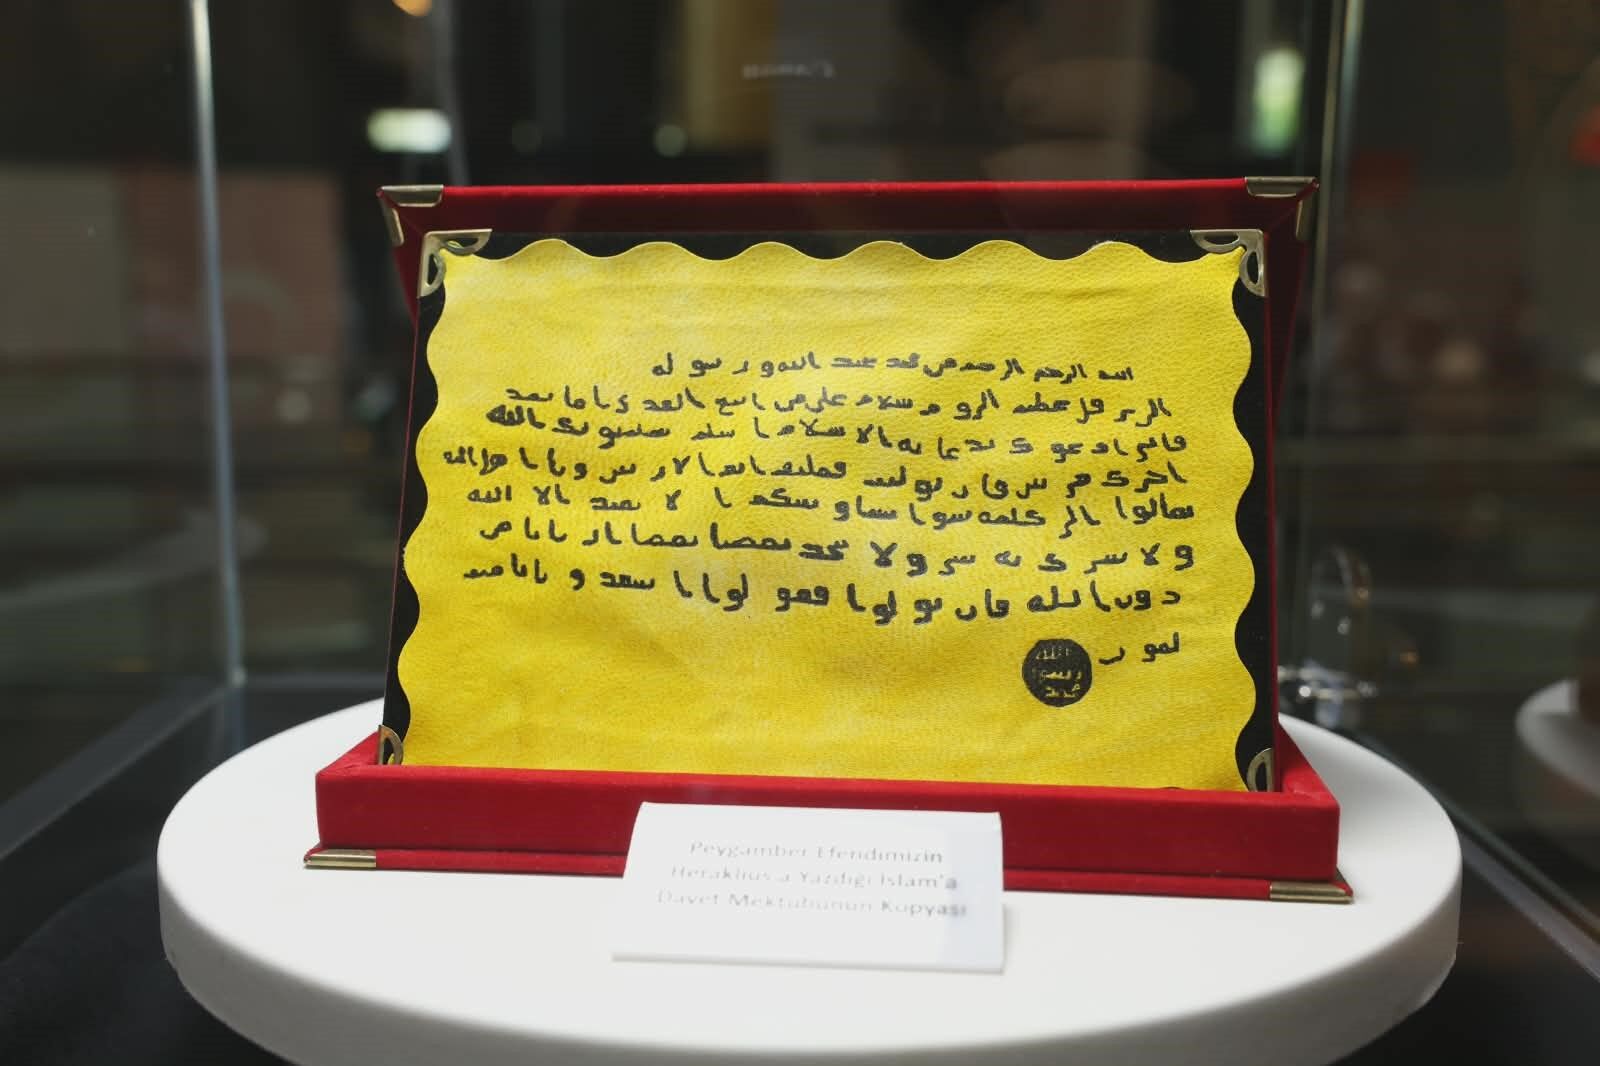 الرحمن الرحيم من محمد عبد الله و رسو له
عظيم الروم سلام على من اتبع الهدى اما بعد
فانى ادعوك بدعايه الاسلام اسلم
اجرك مرتين فان توليت فعليك اثم
تعالوا الى كلمه سوا بيننا وبينكم ا لا نعبد الا الله
ولا نشرك به ولا يتخذ بعضنا بعضا اربابا من
دون الله فان تولوا فقولوا
لمون
الله
رسول
محمد
Peygamber Efendimizin
Heraklius'a Yazdığı İslam'a
Davet Mektubunun Kopyası